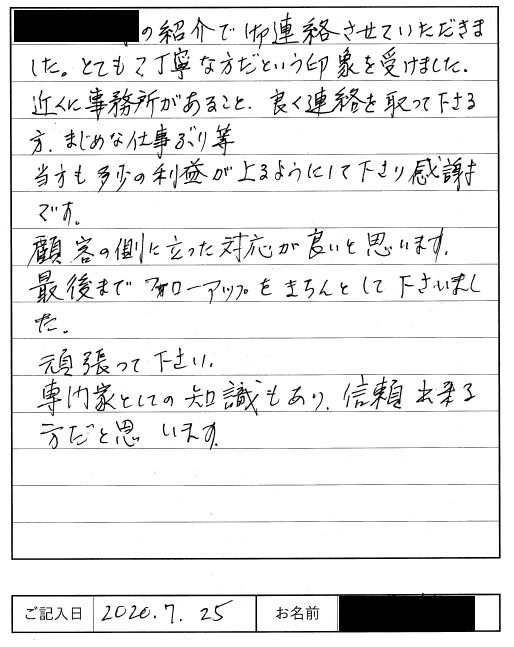 の紹介で御連絡させていただきま
した。とてもご丁寧な方だという印象を受けました。
近くに事務所があること、良く連絡を取って下さる
方、まじめな仕事ぶり等
当方も多少の利益が上るようにして下さり感謝
です。
顧客の側に立った対応が良いと思います。
最後までフォローアップをきちんとして下さいまし
た。
頑張って下さい。
専門家としての知識もあり、信頼出来る
方だと思います。
ご記入日 2020.7.25 お名前